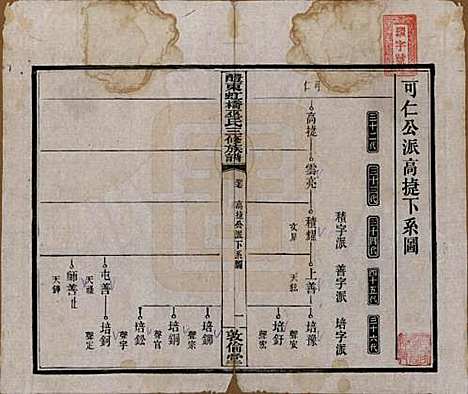 可仁公派高捷下系圖
三十二代
三十三代
三十四代
三十五代
三十六代
積字派
善字派
培字派
可仁
高捷
雲亮
積耀
文昇
上善
天
培豫
培釪
聲宏
醴東虹橋
氏三修族譜
卷
高捷公派下系圖
一
敦倫堂
培鐦
聲宗
培銅
聲官
屯善
天祿
培鈆
聲字
培鈳
聲定
師善 止
天錚